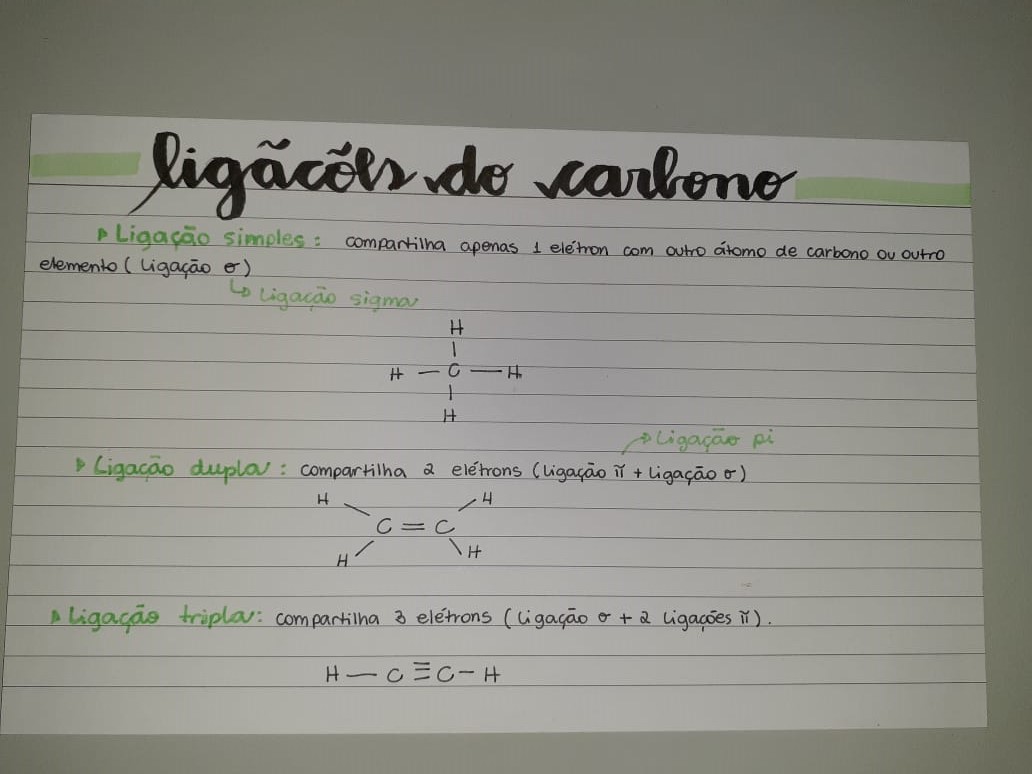 ligãcões do carbono
▸ Ligação simples: compartilha apenas 1 elétron com outro átomo de carbono ou outro
elemento (ligação σ)
↳ Ligação sigma
H
|
H — C — H
|
H
→ Ligação pi
▸ Ligação dupla: compartilha 2 elétrons (ligação π + ligação σ)
H H
C = C
H H
▸ Ligação tripla: compartilha 3 elétrons (ligação σ + 2 ligações π).
H — C ≡ C — H